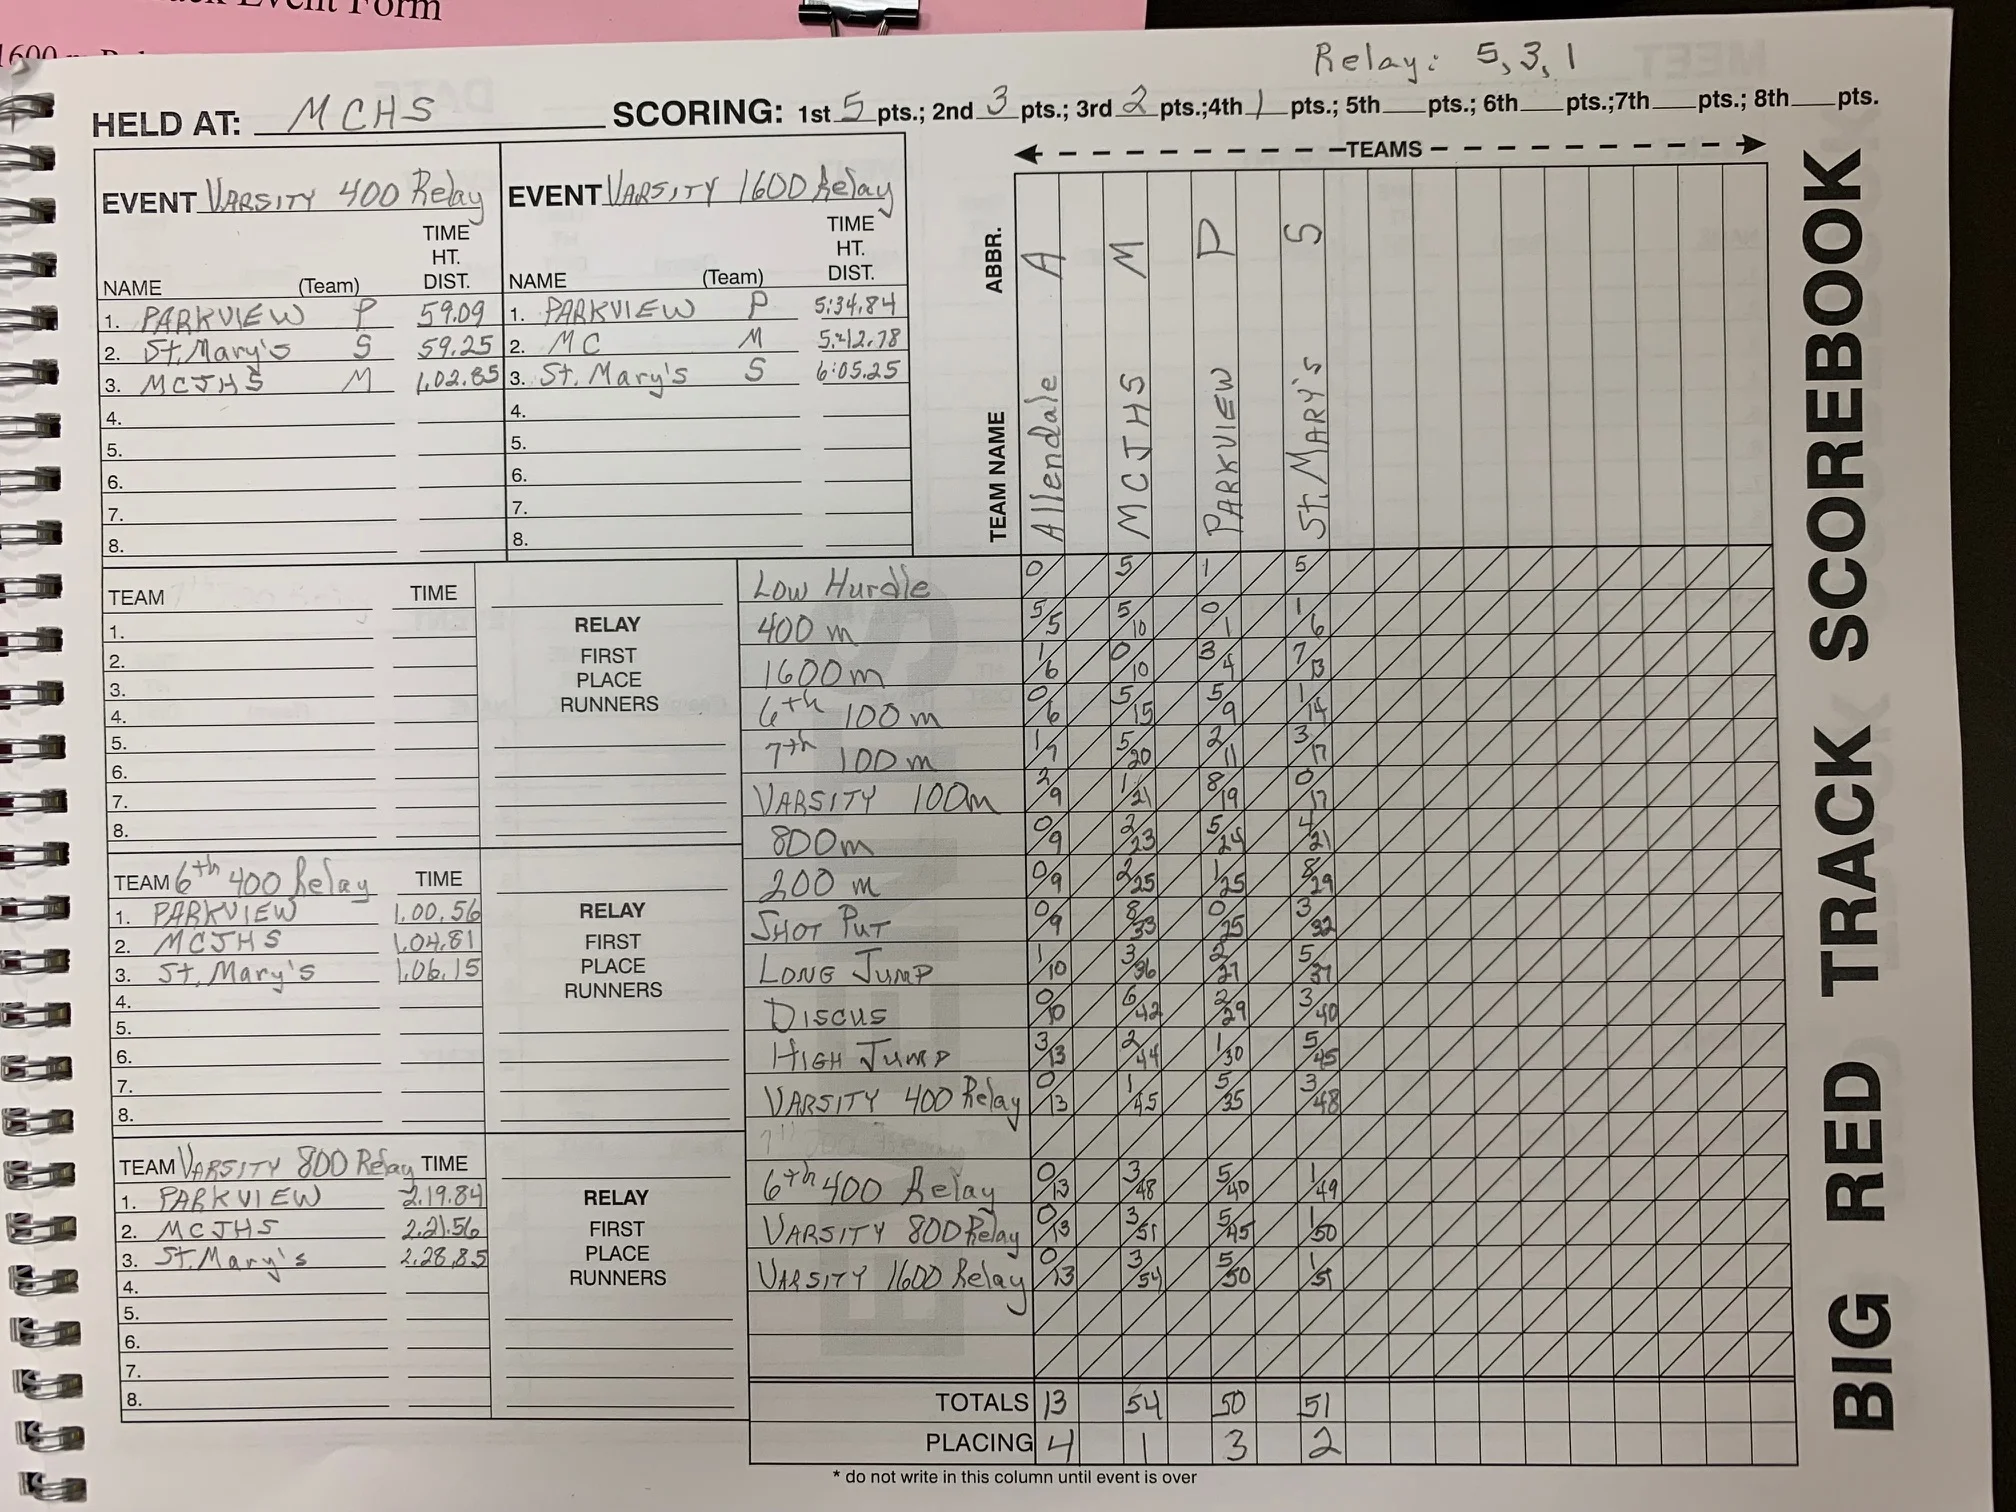 Event Form
Relay: 5, 3, 1
HELD AT: MCHS SCORING: 1st 5 pts.; 2nd 3 pts.; 3rd 2 pts.;4th 1 pts.; 5th pts.; 6th pts.;7th pts.; 8th pts.
TEAMS
EVENT VARSITY 400 Relay
TIME
HT.
NAME (Team) DIST.
1. PARKVIEW P 59.09
2. St. Mary's S 59.25
3. MCJHS M 1,02.85
4.
5.
6.
7.
8.
EVENT VARSITY 1600 Relay
TIME
HT.
NAME (Team) DIST.
1. PARKVIEW P 5:34.84
2. MC M
3. St. Mary's S 6:05.25
4.
5.
6.
7.
8.
ABBR. A M P S
TEAM NAME Allendale MCJHS PARKVIEW St. MARY'S
TEAM TIME
1.
2.
3.
4.
5.
6.
7.
8.
RELAY
FIRST
PLACE
RUNNERS
TEAM 6th 400 Relay TIME
1. PARKVIEW 1,00.56
2. MCJHS 1,04.81
3. St. Mary's 1,06.15
4.
5.
6.
7.
8.
RELAY
FIRST
PLACE
RUNNERS
TEAM VARSITY 800 Relay TIME
1. PARKVIEW 2.19.84
2. MCJHS 2.21.56
3. St. Mary's 2.28.85
4.
5.
6.
7.
8.
RELAY
FIRST
PLACE
RUNNERS
LOW Hurdle 0 5 1 5
400 m 5/5 5/10 0/1 1/6
1600 m 1/6 0/10 3/4 7/13
6th 100 m 0/6 5/15 5/9 1/14
7th 100 m 1/7 5/20 2/11 3/17
VARSITY 100m 2/9 1/21 8/19 0/17
800m 0/9 2/23 5/24 4/21
200 m 0/9 2/25 1/25 8/29
SHOT PUT 0/9 8/33 0/25 3/32
LONG JUMP 1/10 3/36 2/27 5/37
DISCUS 0/10 6/42 2/29 3/40
HIGH JUMP 3/13 2/44 1/30 5/45
VARSITY 400 Relay 0/13 1/45 5/35 3/48
6th 400 Relay 0/13 3/48 5/40 1/49
VARSITY 800 Relay 0/13 3/51 5/45 1/50
VARSITY 1600 Relay 0/13 3/54 5/50 1/51
TOTALS 13 54 50 51
PLACING 4 1 3 2
* do not write in this column until event is over
BIG RED TRACK SCOREBOOK